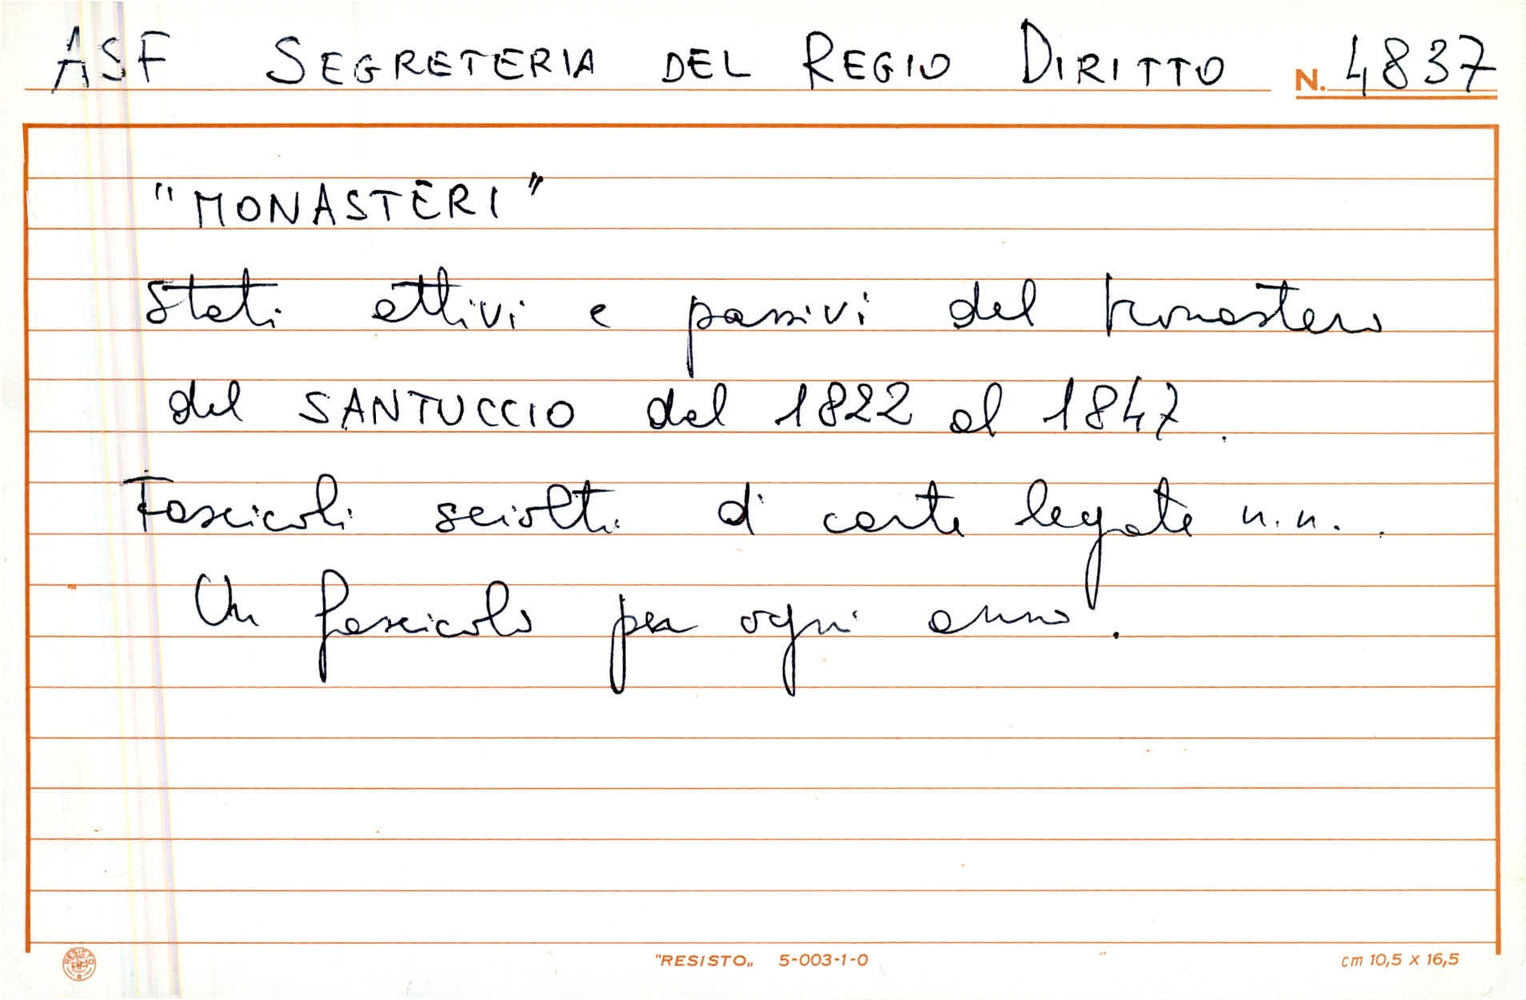 ASF SEGRETERIA DEL REGIO DIRITTO N. 4837
"MONASTERI"
Stati attivi e passivi del Monastero
del SANTUCCIO dal 1822 al 1847.
Fascicoli sciolti di carte legate n.n..
Un fascicolo per ogni anno.
RESISTO
"RESISTO„ 5-003-1-0 cm 10,5 x 16,5